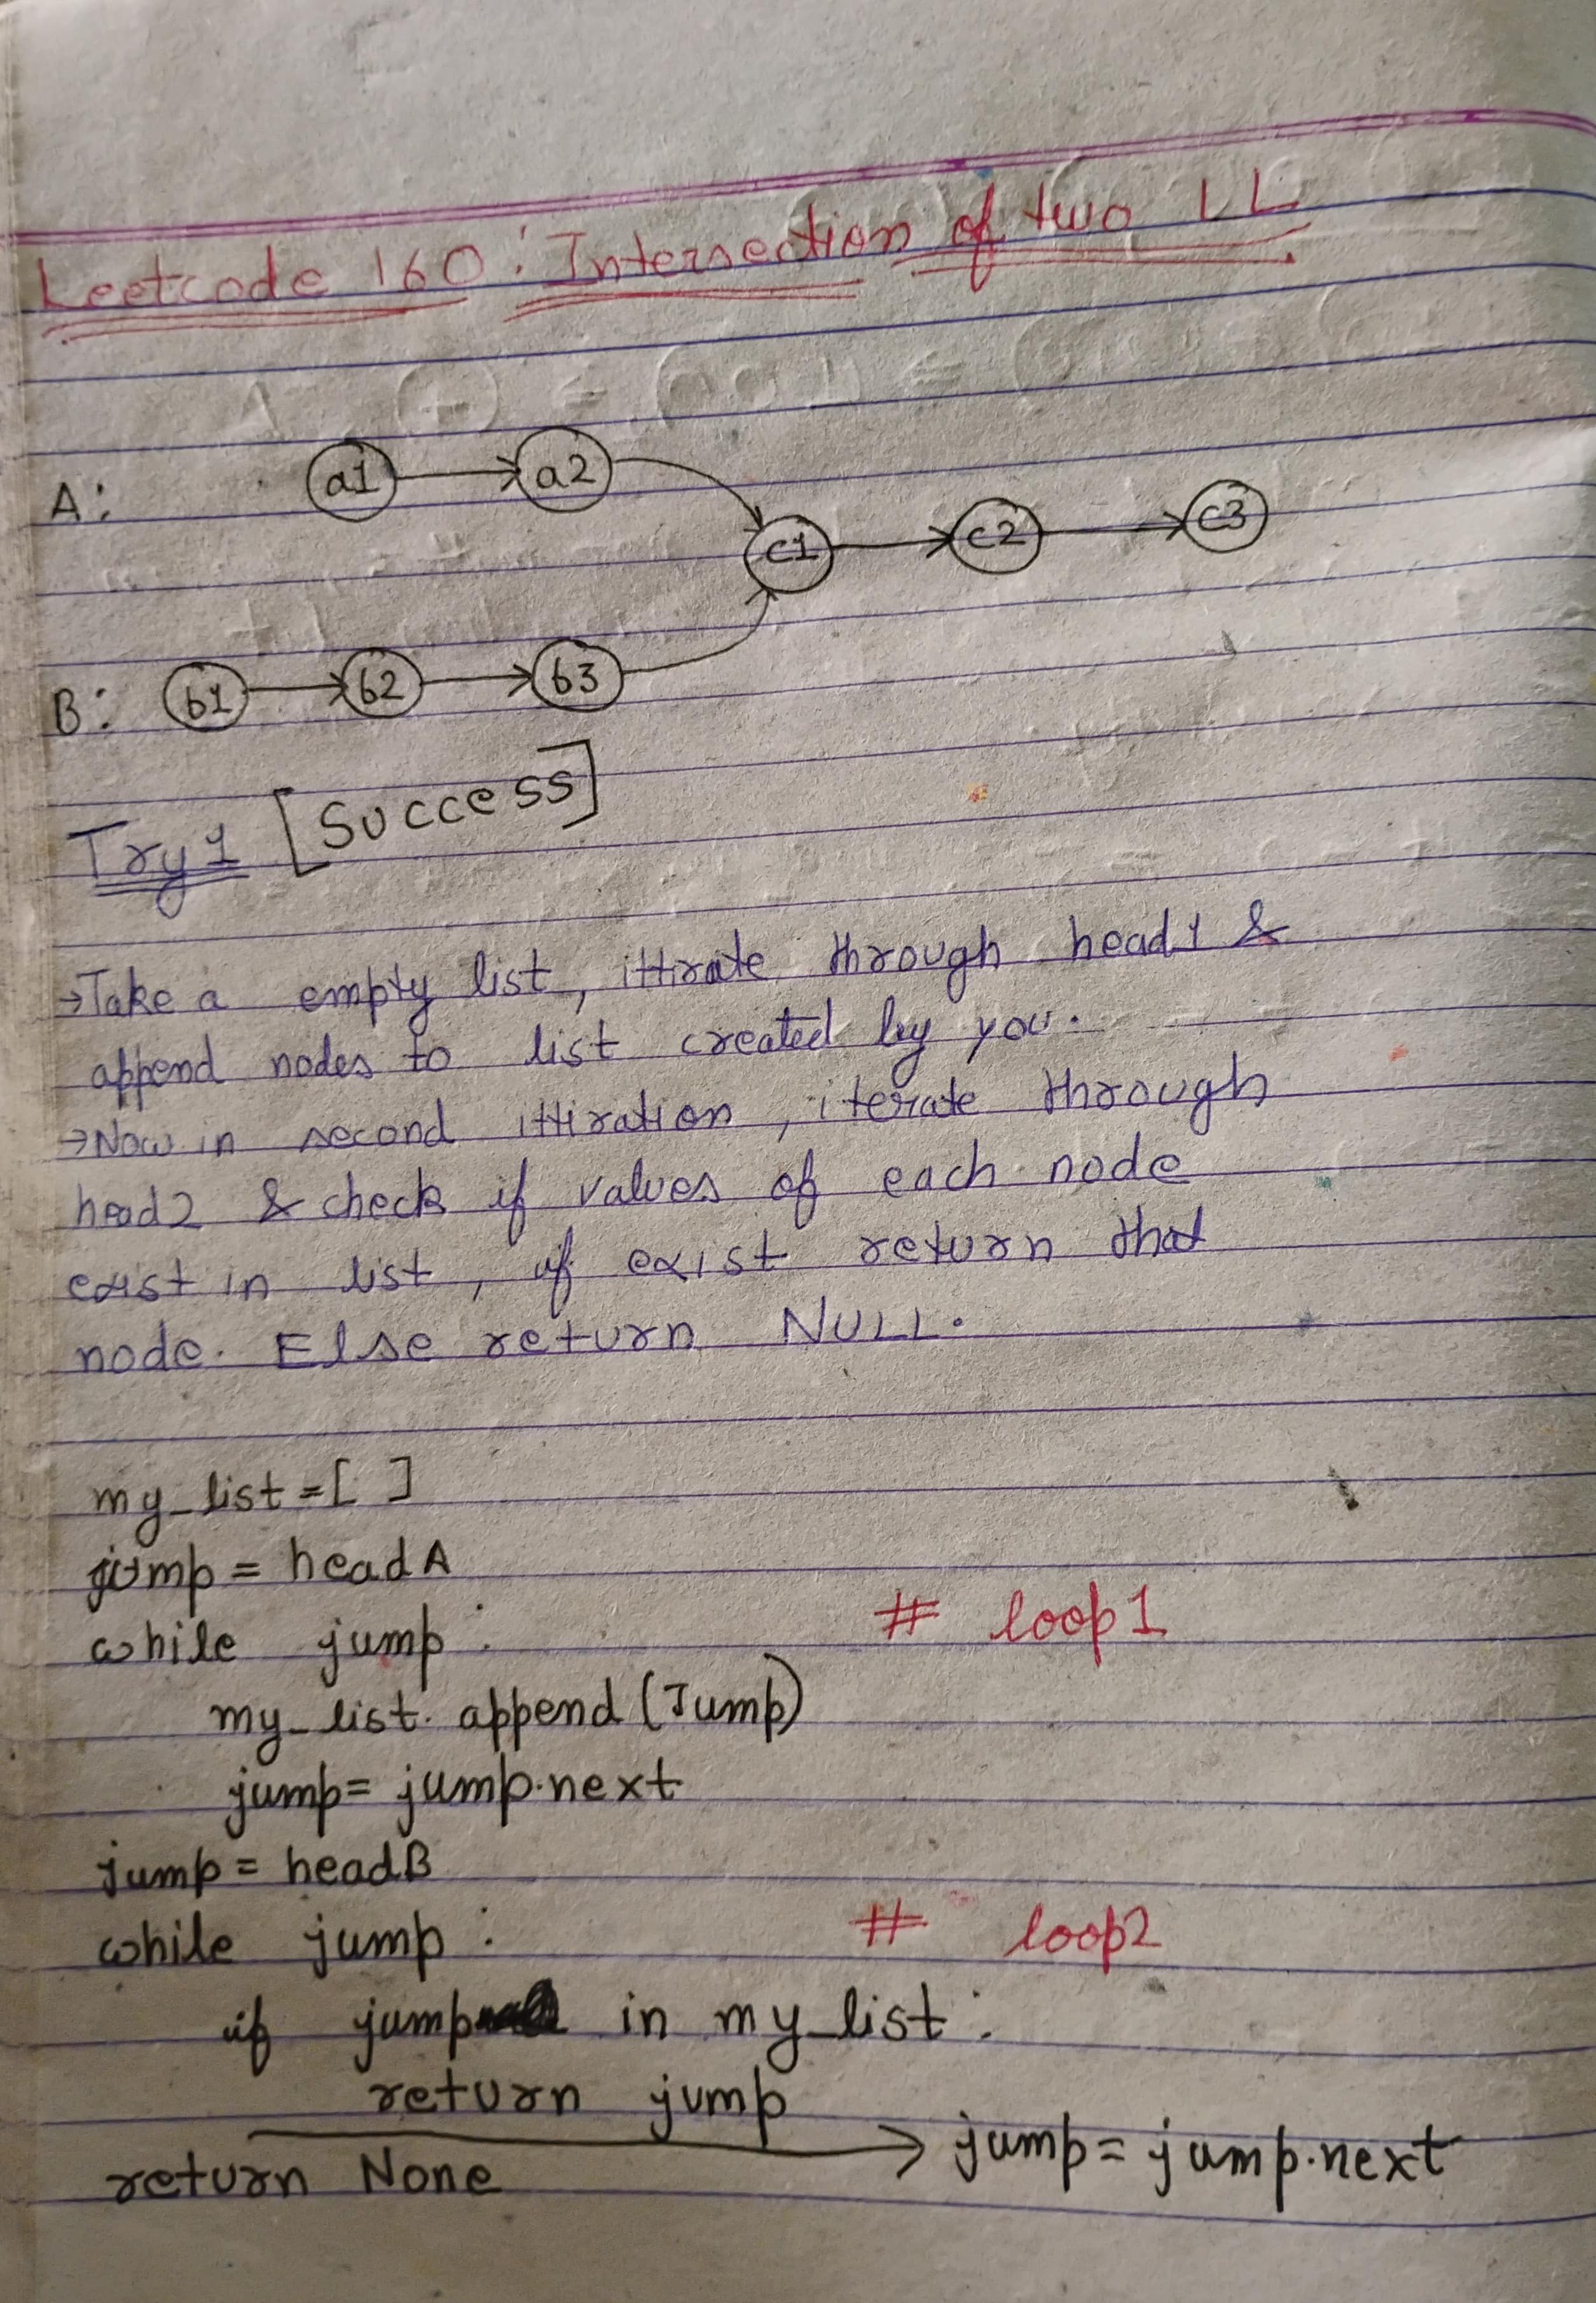 Leetcode 160 : Intersection of two LL
A: a1 a2
c1 c2 c3
B: b1 b2 b3
Try 1 [Success]
→Take a empty list, ittirate through head1 &
append nodes to list created by you.
→Now in second ittiration, iterate through
head2 & check if values of each node
exist in list, if exist return that
node. Else return NULL.
my_list = [ ]
jump = headA
while jump : # loop1
my_list. append (Jump)
jump = jump.next
jump = headB
while jump : # loop2
if jump in my_list :
return jump
→ jump = jump.next
return None